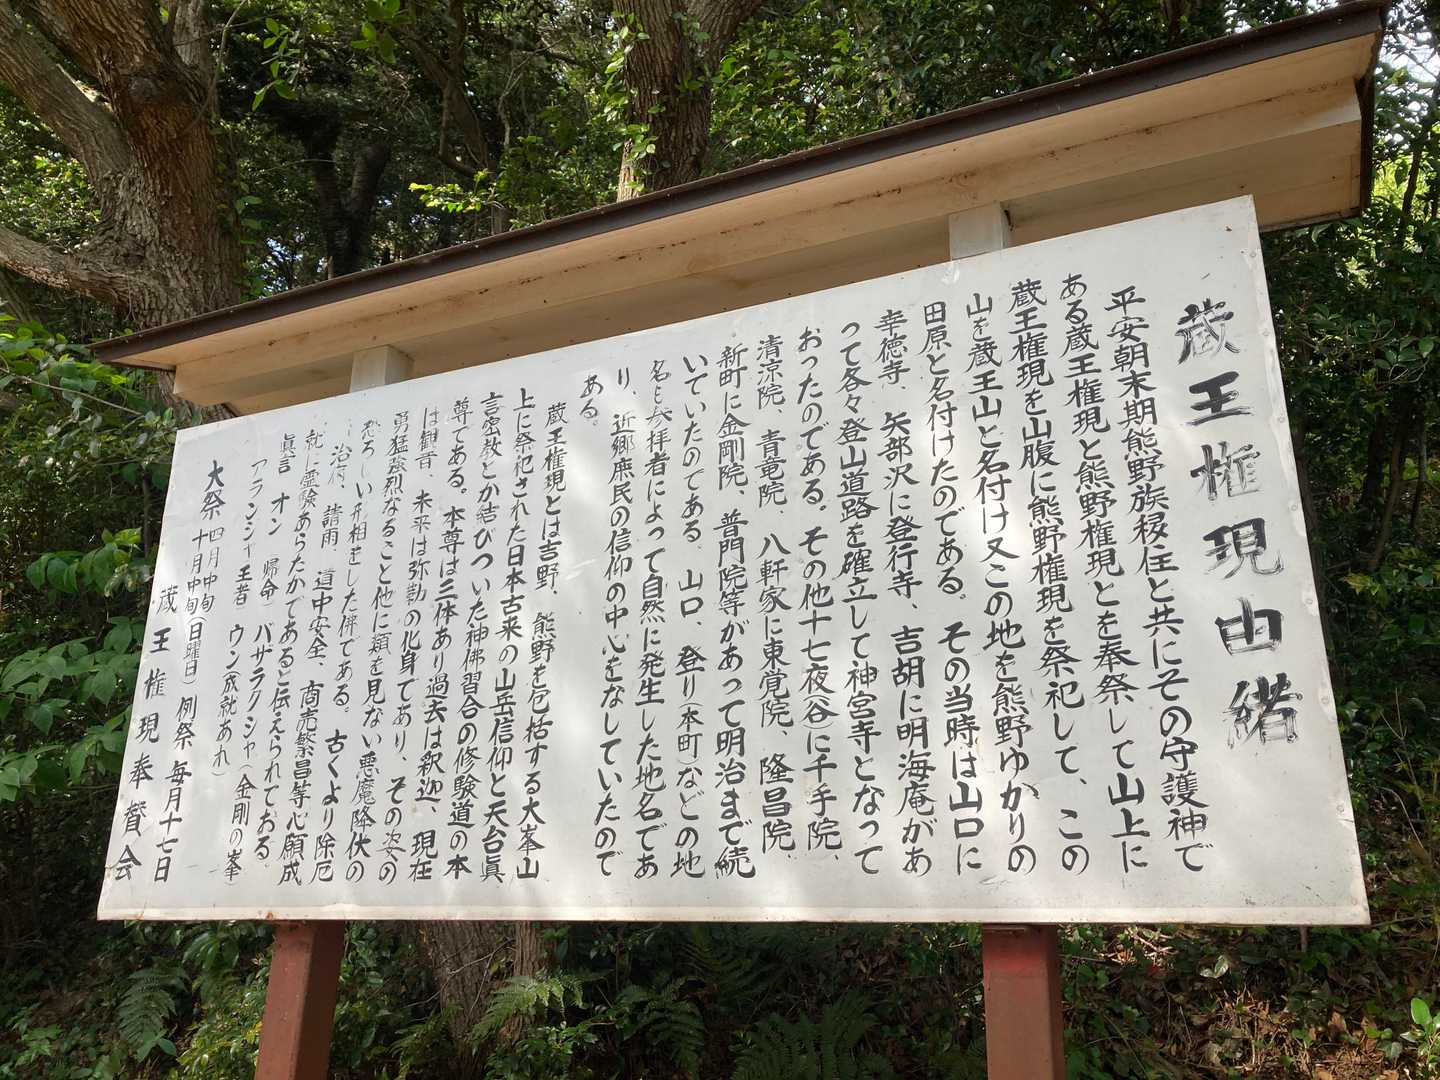 蔵王権現由緒
平安朝末期熊野族移住と共にその守護神で
ある蔵王権現と熊野権現とを奉祭して山上に
蔵王権現を山腹に熊野権現を祭祀して、この
山を蔵王山と名付け又この地を熊野ゆかりの
田原と名付けたのである。その当時は山口に
幸徳寺、矢部沢に登行寺、吉胡に明海庵があ
って各々登山道路を確立して神宮寺となって
おったのである。その他十七夜谷に千手院、
清涼院、青竜院、八軒家に東覚院、隆昌院、
新町に金剛院、普門院等があって明治まで続
いていたのである。山口、登り(本町)などの地
名も参拝者によって自然に発生した地名であ
り、近郷庶民の信仰の中心をなしていたので
ある。
蔵王権現とは吉野、熊野を包括する大峯山
上に祭祀された日本古来の山岳信仰と天台眞
言密教とが結びついた神佛習合の修験道の本
尊である。本尊は三体あり過去は釈迦、現在
は観音、未来は弥勒の化身であり、その姿の
勇猛強烈なること他に類を見ない悪魔降伏の
恐ろしい形相をした佛である。古くより除厄
、治病、請雨、道中安全、商売繁昌等心願成
就し霊験あらたかであると伝えられておる
眞言 オン(帰命)バザラクシャ(金剛の峯)
アランジャ王者 ウン(成就あれ)
大祭 四月中旬
十月中旬(日曜日) 例祭 毎月十七日
蔵王権現奉賛会